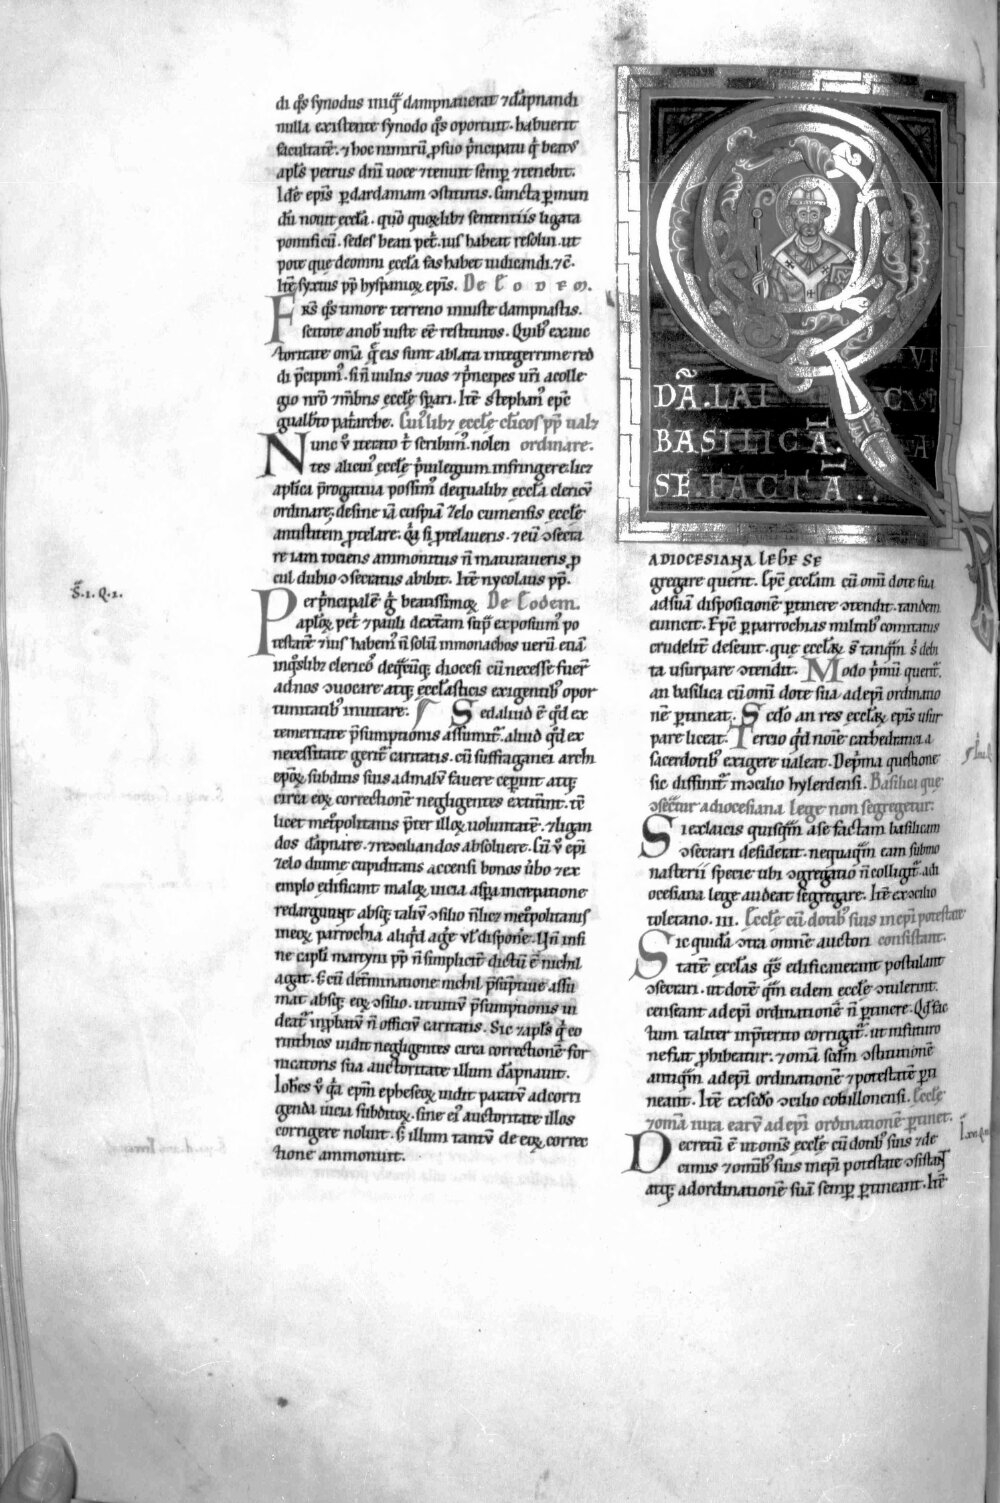 di q̄s synodus iniq̄ dampnauerat ⁊ dāpnandi
nulla existente synodo q̄s oportuit. habuerit
facultatē. ⁊ hoc nimirū ꝓ suo p̄ncipatu q̄ beatꝰ
apl̄s petrus dn̄i uoce ⁊ tenuit semꝑ ⁊ tenebit.
Idē ep̄is ꝑ dardaniam ↄstitutis. Cuncta ꝑ mun
dū nouit ecclā. quō quorūlibꝫ sententiis ligata
pontificū. sedes beati pet̄. ius habeat resolu. ut
pote que de omni ecclā fas habet iudicandi. ⁊c̄.
Itē syxtus pp̄ hyspanioꝝ ep̄is. De Eodem.
Frs̄ q̄s timore terreno iniuste dampnastis.
scitote a nob̄ iuste eē restitutos. Quibꝰ ex auc
toritate om̄a q̄ eis sunt ablata integerrime red
di p̄cipimꝰ. si n̄ uultis ⁊ uos ⁊ p̄ncipes ur̄i a colle
gio nr̄o ⁊ mb̄ris ecclē sp̄ari. Itē stephanꝰ ep̄c
gualbto patarche. Cuiꝰlibꝫ ecclē cl̄icos pp̄ ualꝫ
Nunc ū iterato t̄ scribimꝰ. nolen ordinare.
tes alicuiꝰ ecclē p̄uilegium infringere. licꝫ
aplica p̄rogatiua possimꝰ de qualibꝫ ecclā clericū
ordinare. desine iā cuspiā zelo cumensis ecclē
antistitem ꝓtelare. q̄a si ꝓtelaueris. ⁊ eū ↄsecra
re iam tociens ammonitus n̄ maturaueris. ꝓ
cul dubio ↄsecratus abibit. Itē nycolaus pp̄.
Per p̄ncipalē q̄ beatissimoꝝ De Eodem.
aploꝝ pet̄ ⁊ pauli dext̄am sup̄ exposuimꝰ po
testatē ⁊ ius habemꝰ n̄ solū monachos uerū etiā
inq̄slibꝫ clericoꝰ de q̄cūqꝫ diocesi cū necesse fuer̄
ad nos ↄuocare atqꝫ ecclasticis exigentibꝰ opor
tunitatibꝰ inuitare. Sed aliud ē q̄d ex
temeritate p̄sumptionis assumit̄. aliud q̄d ex
necessitate gerit̄ caritatis. cū suffraganei archi
ep̄oꝝ subditis suis ad malū fauere ceperint atqꝫ
circa eoꝝ correctionē negligentes extit̄int. tē
licet met̄politanis p̄ter illoꝝ uoluntatē. ⁊ ligan
dos dāpnare. ⁊ recōciliandos absoluere. Cū ū ep̄i
zelo diuine cupiditatis accensi bonos ūbo ⁊ ex
emplo edificant maloꝝ uicia aspa increpatione
redarguunt absqꝫ taliū ↄsilio n̄ licꝫ met̄politanis
in eoꝝ parrochia aliq̄d ag̃e ul̄ dispon̄e. Un̄ in fi
ne capl̄i martyni pp̄ n̄ simplicit̄ dictū ē nichil
agat. s; cū det̄minatione nichil p̄sūptiue assu
mat absqꝫ eoꝝ ↄsilio. ut unū p̄sumptionis ui
deat̄ inp̄batū n̄ officiū caritatis. Sic ⁊ apl̄s q̄ co
rinthios uidit negligentes circa correctionē for
nicatoris sua auctoritate illum dāpnauit.
Ioh̄es ū q̄a ep̄m epheseoꝝ uidit paratū ad corri
genda uicia subditoꝝ. sine eiꝰ auctoritate illos
corrigere noluit. s; illum tantū de eoꝝ correc
tione ammonuit.
S̄. i. Q. i.
QUI
DĀ. LAI CUS
BASILICĀ.
SE. FACTĀ..
A DIOCESIANA LEGE SE
gregare querit. Ep̄c ecclam cū om̄i dote sua
ad suā disposicionē ꝑtinere ↄtendit. tandem
euincit. Ep̄c ꝑ parrochias militibꝰ comitatus
crudelit̄ deseuit. que ecclaꝝ s̄ tanqm̄ s̄ debi
ta usurpare ↄtendit. Modo p̄mū querit̄.
an basilica cū om̄i dote sua ad ep̄i ordinatio
nē ꝑtineat. Scdo an res ecclaꝝ ep̄is usur
pare liceat. Tercio q̄d noīe cathedratici a
sacerdotibꝰ exigere ualeat. De p̄ma questione
sic diffinit̄ in ↄcilio hylerdensi. Basilica que
ↄsec̄tur a diocesiana lege non segregetur.
Si ex laicis quisqm̄ a se factam basilicam
ↄsecrari desiderat. nequaqm̄ eam sub mo
nasterii specie ubi ↄgregatio n̄ colligit̄. a di
ocesiana lege audeat segregare. Itē ex ↄcilio
toletano. iii. Ecclē cū dotibꝰ suis in ep̄i potestate
Sic quidā ↄtra omnē auctori consistant.
tatē ecclas q̄s edificauerunt postulant
ↄsecrari. ut dotē qm̄ eidem ecclē ↄtulerint.
censeant ad ep̄i ordinationē n̄ ꝑtinere. Qd̄ fac
tum taliter in p̄terito corrigit̄. ut in futuro
ne fiat ꝓhibeatur. ⁊ om̄a scd̄m ↄstitutionē
antiqm̄ ad ep̄i ordinationē ⁊ potestatē ꝑti
neant. Itē ex scdo ↄcilio cobillonensi. Ecclē
⁊ om̄a iura earū ad ep̄i ordinationē ꝑtinet.
Decretū ē ut om̄s ecclē cū dotibꝰ suis ⁊ de
cimis ⁊ om̄ibꝰ suis in ep̄i potestate ↄsistāt
atqꝫ ad ordinationē suā semꝑ ꝑtineant. Itē